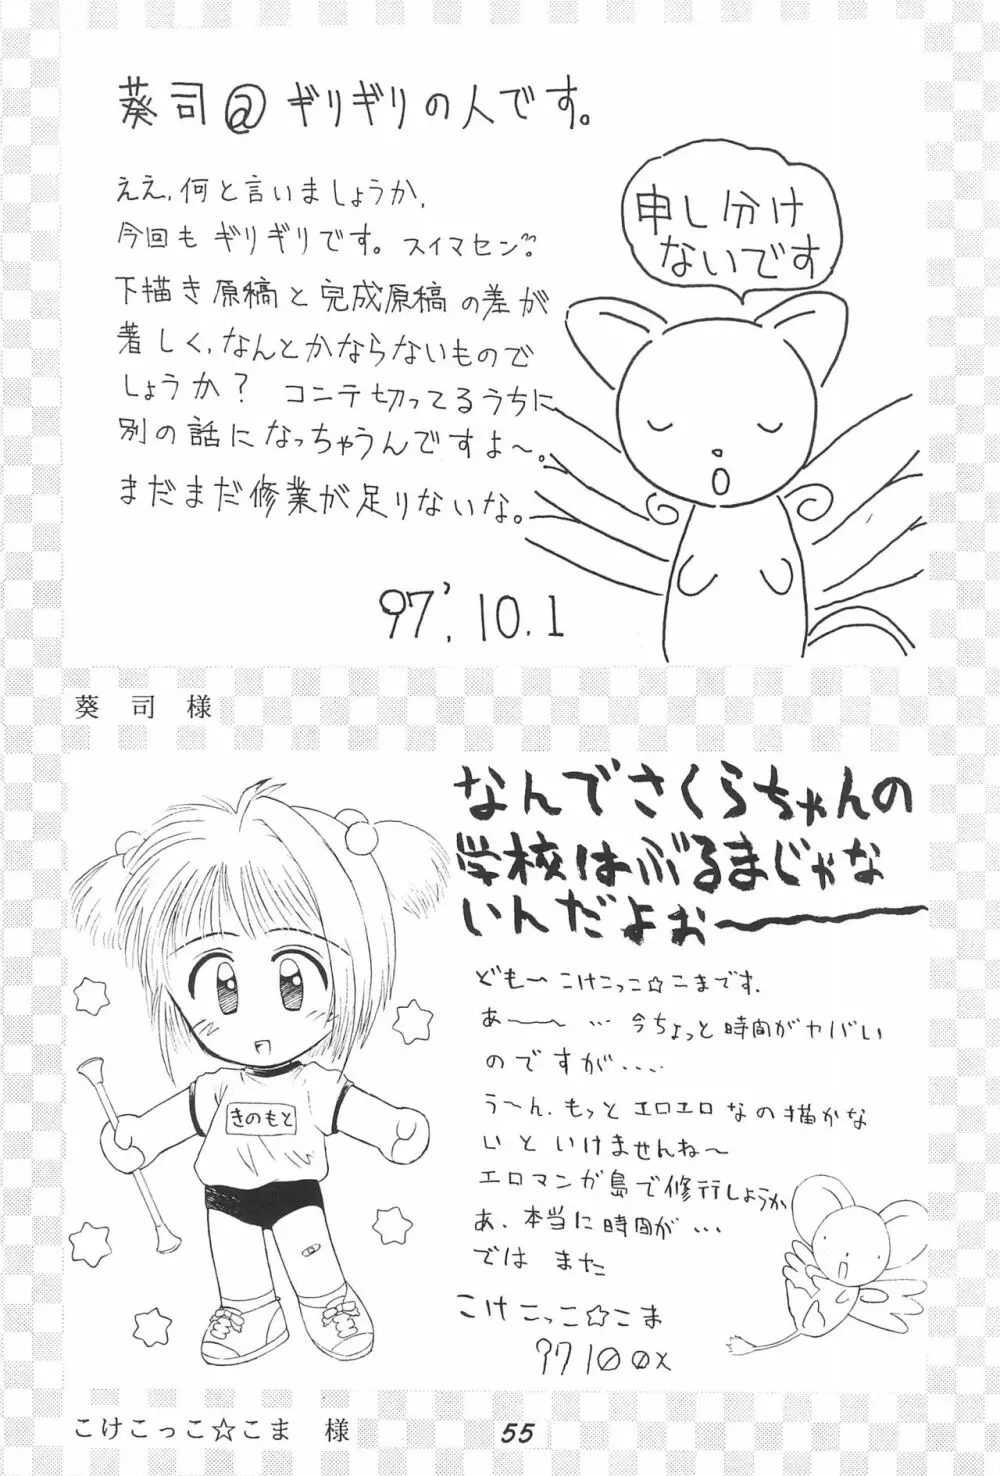 葵司@ギリギリの人です。
ええ、何と言いましょうか、
今回もギリギリです。スイマセン
下描き原稿と完成原稿の差が
著しく、なんとかならないもので
しょうか？ コンテ切ってるうちに
別の話になっちゃうんですよ〜。
まだまだ修業が足りないな。
97'.10.1
申し分け
ないです
葵 司 様
なんでさくらちゃんの
学校はぶるまじゃな
いんだよぉ〜
ども〜 こけこっこ☆こまです.
あ〜 … 今ちょっと時間がヤバい
のですが....
う〜ん.もっとエロエロなの描かな
いといけませんね〜
エロマンガ島で修行しようか
あ、本当に時間が…
では また
こけこっこ☆こま
97100x
きのもと
こけこっこ☆こま 様
55